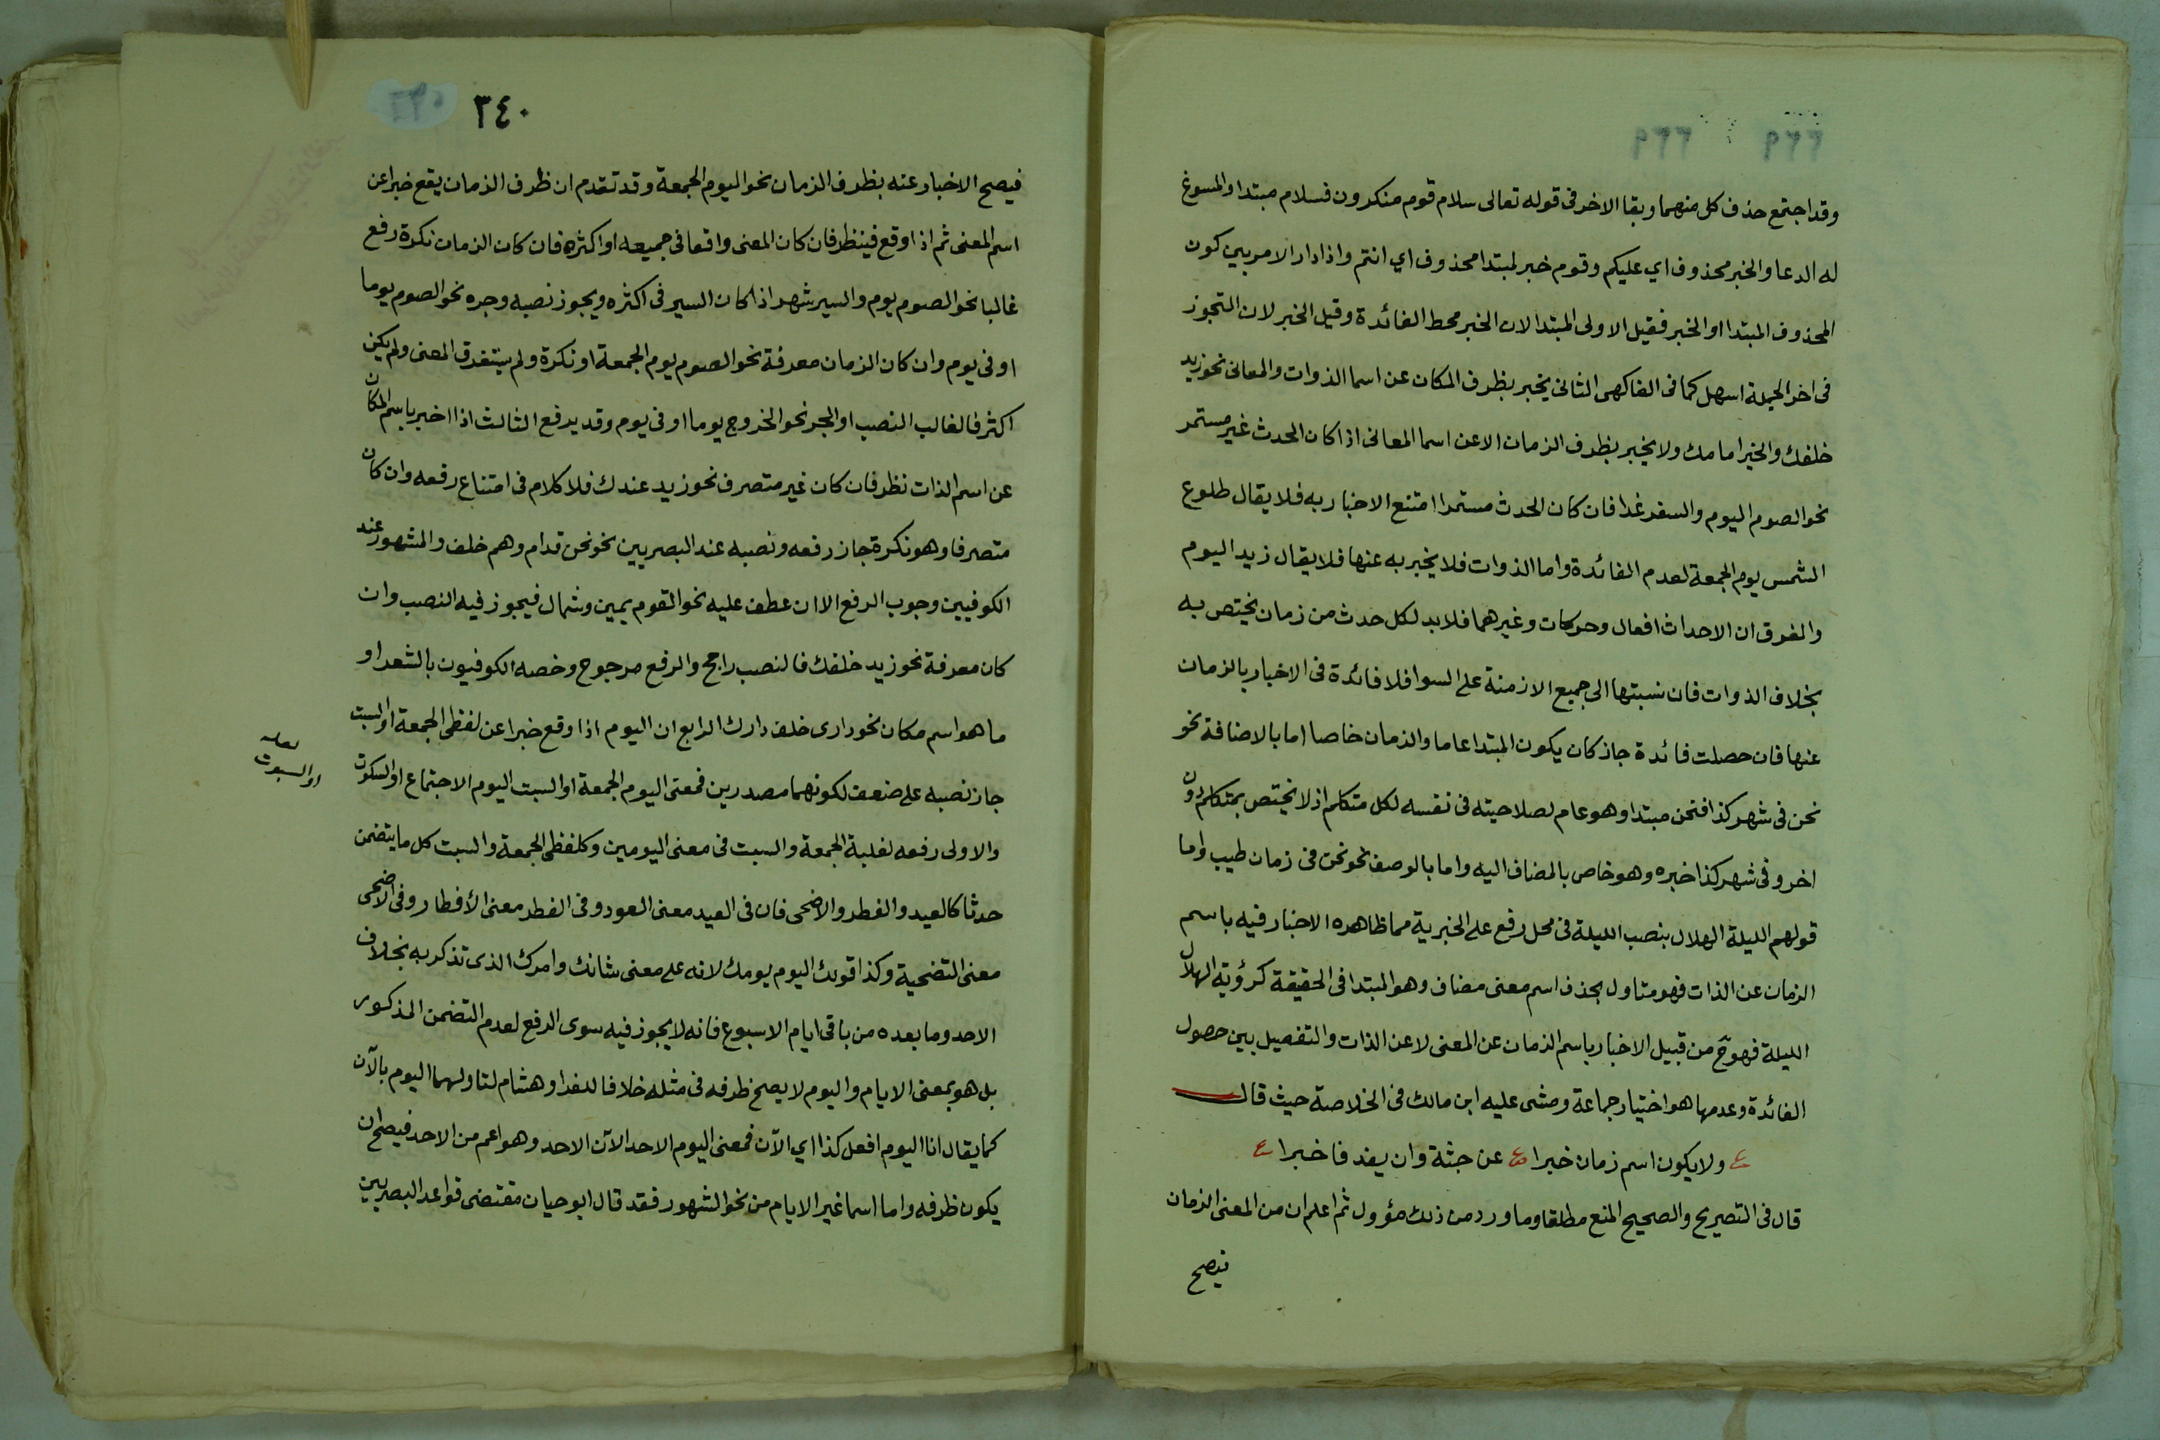 وقد اجتمع حذف كل منهما وبقا الاخر فى قوله تعالى سلام قوم منكرون فسلام مبتدا والمسوغ
له الدعا والخبر محذوف اي عليكم وقوم خبر لمبتدا محذوف اي انتم واذا دار الامر بين كون
المحذوف المبتدا او الخبر فقيل الاولى المبتدا لان الخبر محط الفائدة وقيل الخبر لان التجوز
فى اخر الجملة اسهل كما فى الفاكهى الثانى يخبر بظرف المكان عن اسما الذوات والمعانى نحو زيد
خلفك والخير امامك ولا يخبر بظرف الزمان الا عن اسما المعانى اذا كان الحدث غير مستمر
نحو الصوم اليوم والسفر غدا فان كان الحدث مستمرا امتنع الاخبار به فلا يقال طلوع
الشمس يوم الجمعة لعدم الفائدة واما الذوات فلا يخبر به عنها فلا يقال زيد اليوم
والفرق ان الاحداث افعال وحركات وغيرهما فلا بد لكل حدث من زمان يختص به
بخلاف الذوات فان نسبتها الى جميع الازمنة على السوا فلا فائدة فى الاخبار بالزمان
عنها فان حصلت فائدة جاز كان يكون المبتدا عاما والزمان خاصا اما بالاضافة نحو
نحن فى شهر كذا فنحن مبتدا وهو عام لصلاحيته فى نفسه لكل متكلم اذ لا يختص بمتكلم دون
اخر وفى شهر كذا خبره وهو خاص بالمضاف اليه واما بالوصف نحو نحن فى زمان طيب واما
قولهم الليلة الهلال بنصب الليلة فى محل رفع على الخبرية مما ظاهره الاخبار فيه باسم
الزمان عن الذات فهو متاول بحذف اسم معنى مضاف وهو المبتدا فى الحقيقة كرؤية الهلال
الليلة فهو ح من قبيل الاخبار باسم الزمان عن المعنى لا عن الذات والتفصيل بين حصول
الفائدة وعدمها هو اختيار جماعة ومشى عليه ابن مالك فى الخلاصة حيث قال
ولا يكون اسم زمان خبرا عن جثة وان يفد فاخبرا
قال فى التصريح والصحيح المنع مطلقا وما ورد من ذلك مؤول ثم اعلم ان من المعنى الزمان
فيصح
٣٤٠
فيصح الاخبار عنه بظرف الزمان نحو اليوم الجمعة وقد تقدم ان ظرف الزمان يقع خبرا عن
اسم المعنى ثم اذا وقع فينظر فان كان المعنى واقعا فى جميعه او اكثره فان كان الزمان نكرة رفع
غالبا نحو الصوم يوم والسير شهر اذا كان السير فى اكثره ويجوز نصبه وجره نحو الصوم يوما
او فى يوم وان كان الزمان معرفة نحو الصوم يوم الجمعة او نكرة ولم يستغرق المعنى ولم يكن
اكثر فالغالب النصب او الجر نحو الخروج يوما او فى يوم وقد يرفع الثالث اذا اخبر باسم المكان
عن اسم الذات نظر فان كان غير متصرف نحو زيد عندك فلا كلام فى امتناع رفعه وان كان
متصرفا وهو نكرة جاز رفعه ونصبه عند البصريين نحو نحن قدام وهم خلف والمشهور عند
الكوفيين وجوب الرفع الا ان عطف عليه نحو القوم يمين وشمال فيجوز فيه النصب وان
كان معرفة نحو زيد خلفك فالنصب راجح والرفع مرجوح وخصه الكوفيون بالشعر او
ما هو اسم مكان نحو دارى خلف دارك الرابع ان اليوم اذا وقع خبرا عن لفظى الجمعة او السبت
جاز نصبه على ضعف لكونهما مصدرين فمعنى اليوم الجمعة او السبت اليوم الاجتماع او السكوت
لعله
او السبوت
والاولى رفعه لغلبة الجمعة والسبت فى معنى اليومين وكلفظى الجمعة والسبت كل ما يتضمن
حدثا كالعيد والفطر والاضحى فان فى العيد معنى العود وفى الفطر معنى الأفطار وفى الاضحى
معنى التضحية وكذا قولك اليوم يومك لانه على معنى شانك وامرك الذى تذكر به بخلاف
الاحد وما بعده من باقى ايام الاسبوع فانه لا يجوز فيه سوى الرفع لعدم التضمن المذكور
بل هو بمعنى الايام واليوم لا يصح ظرفه فى مثله خلافا للفرا وهشام لتاولهما اليوم بالآن
كما يقال انا اليوم افعل كذا اي الآن فمعنى اليوم الاحد الآن الاحد وهو اعم من الاحد فيصح ان
يكون ظرفه واما اسما غير الايام من نحو الشهور فقد قال ابو حيان مقتضى قواعد البصريين